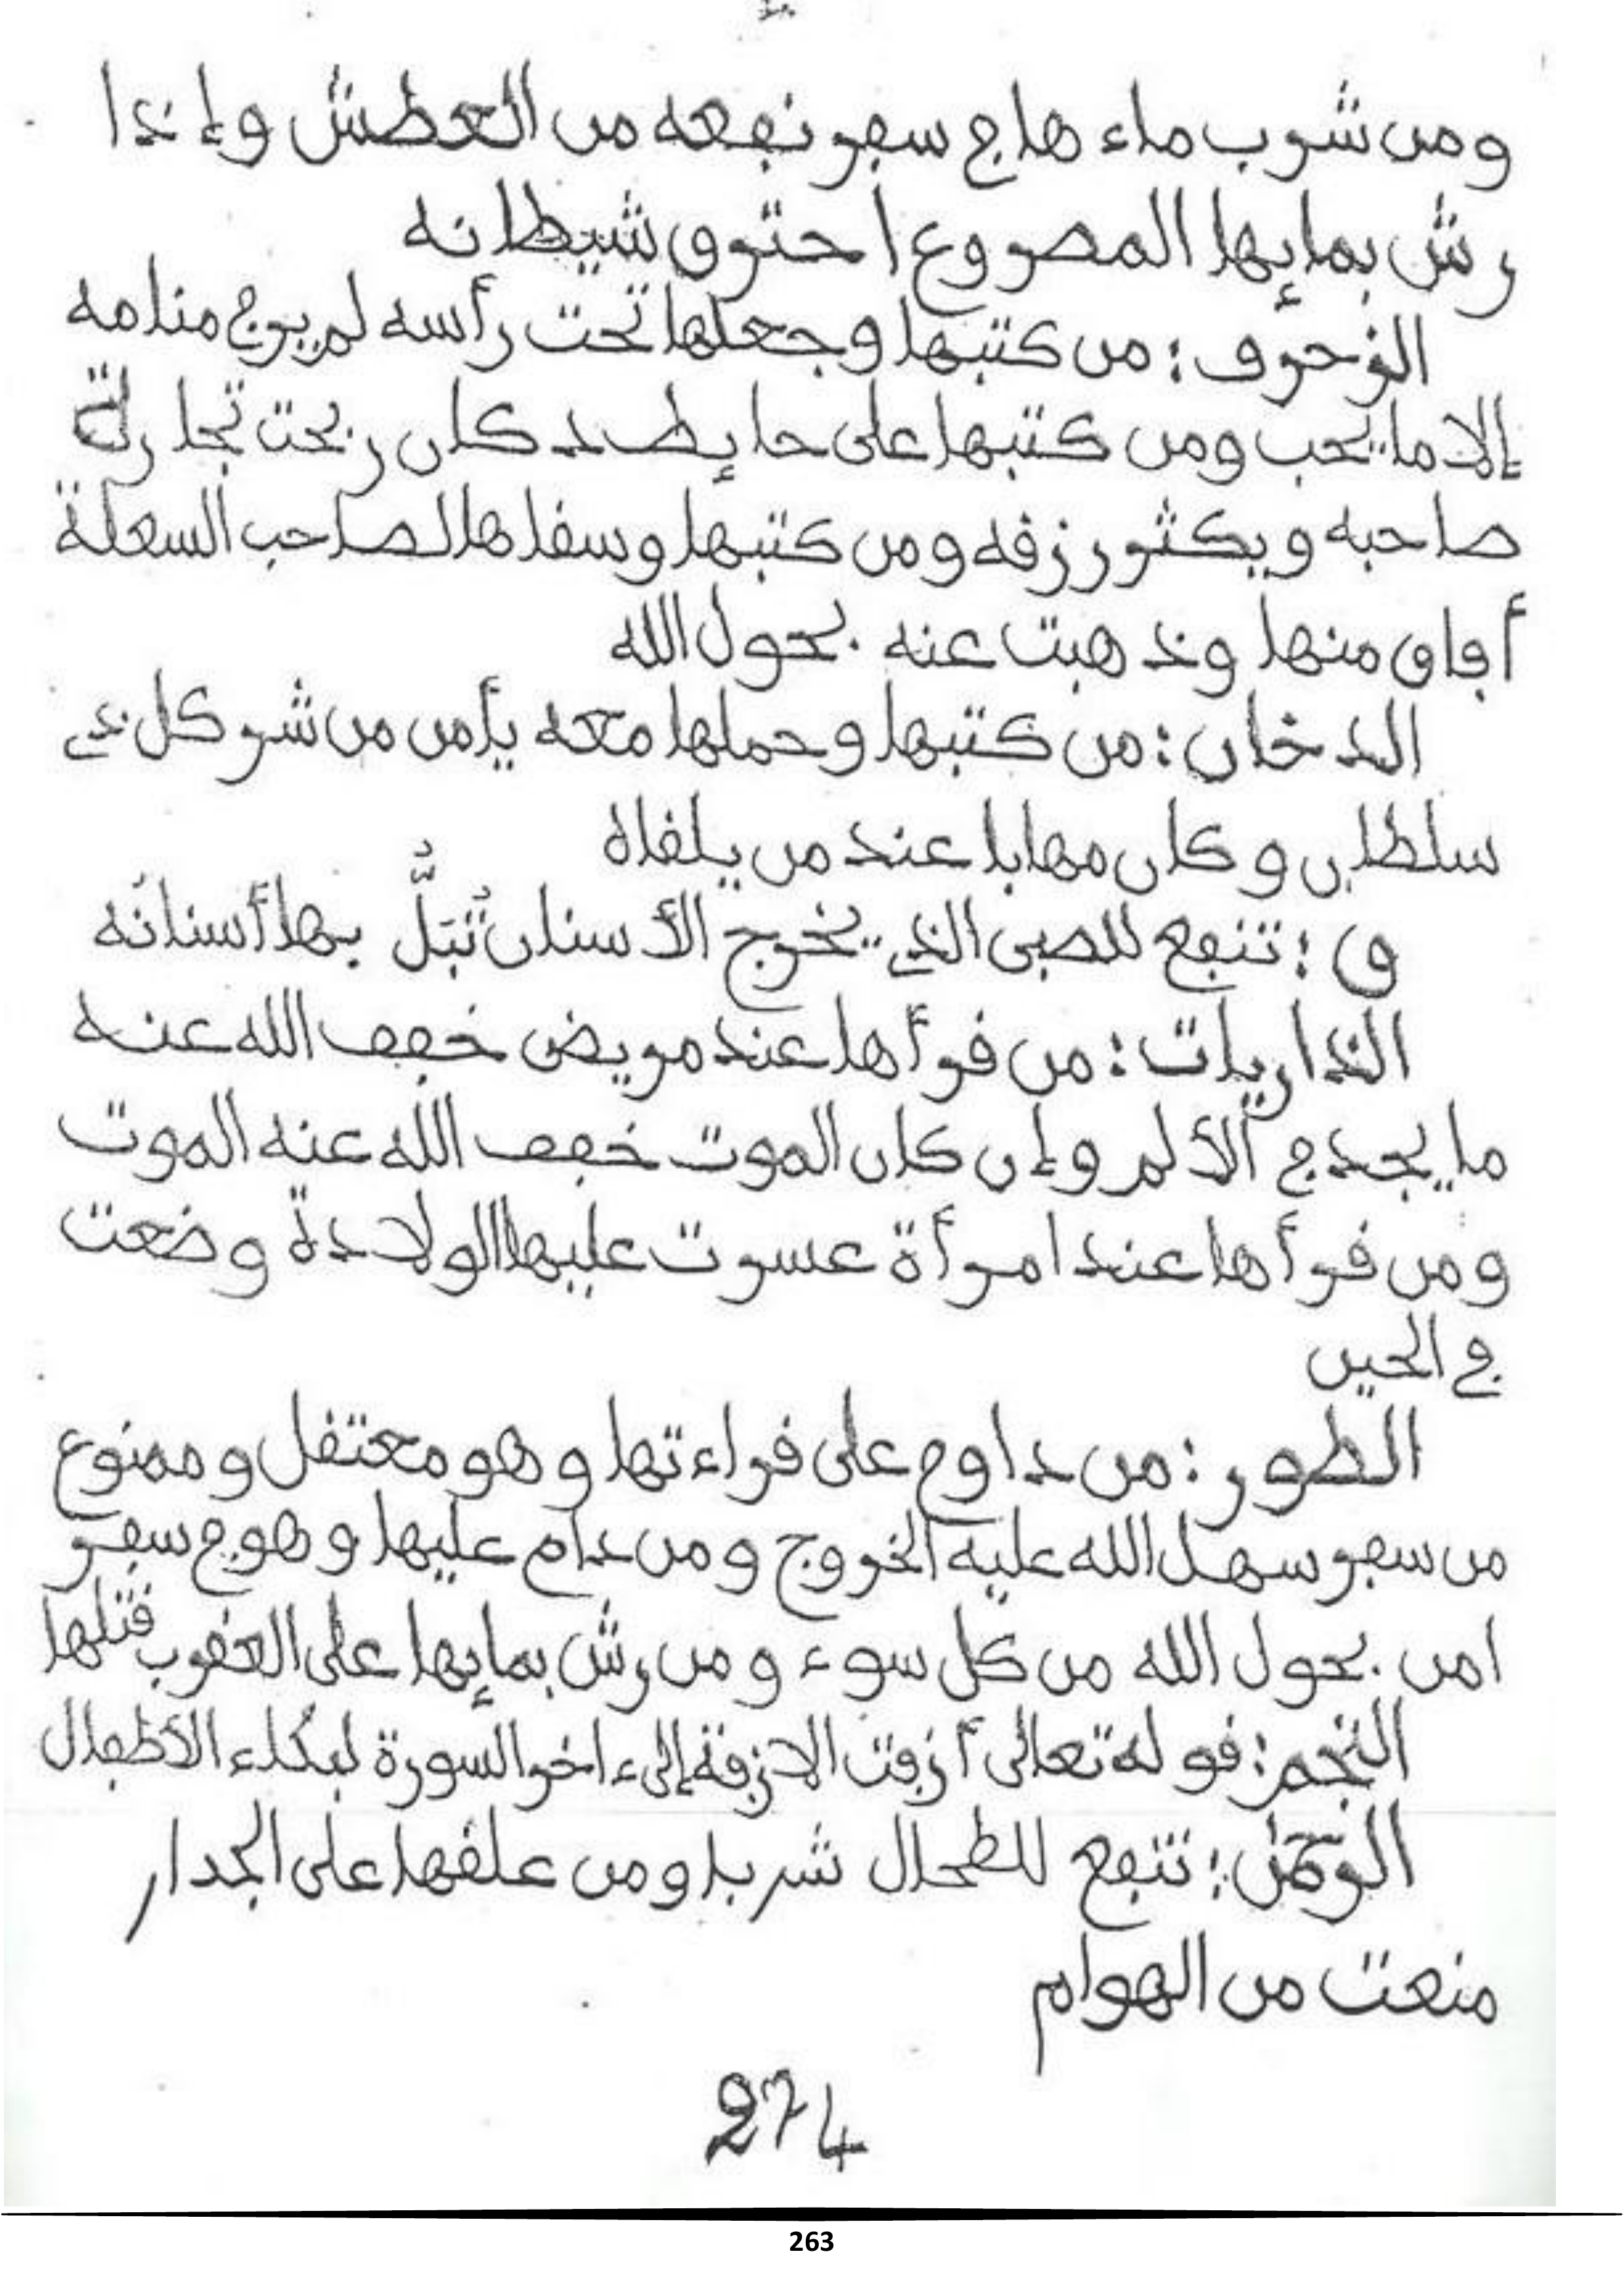 ومن شرب ماءها في سفر نفعه من العطش وإذا
رش بمايها المصروع احترق شيطانه
الزخرف: من كتبها وجعلها تحت رأسه لم ير في منامه
إلا ما يحب ومن كتبها على حايط دكان ربحت تجارة
صاحبه ويكثر رزقه ومن كتبها وسقاها لصاحب السعلة
أفاق منها وذهبت عنه بحول الله
الدخان: من كتبها وحملها معه يأمن من شر كل ذي
سلطان وكان مهابا عند من يلقاه
ق: تنفع للصبي الذي يخرج الأسنان تُبَلُّ بها أسنانُه
الذاريات: من قرأها عند مريض خفف الله عنه
ما يجد في الألم وإن كان الموت خفف الله عنه الموت
ومن قرأها عند امرأة عسرت عليها الولادة وضعت
في الحين
الطور: من داوم على قراءتها وهو معتقل وممنوع
من سفر سهل الله عليه الخروج ومن دام عليها وهو في سفر
امن بحول الله من كل سوء ومن رش بمايها على العقرب قتلها
النجم: قوله تعالى أزفت الازفة إلىء اخر السورة لبكاء الأطفال
الرحمٰن: تنفع للطحال شربا ومن علقها على الجدار
منعت من الهوام
274
263